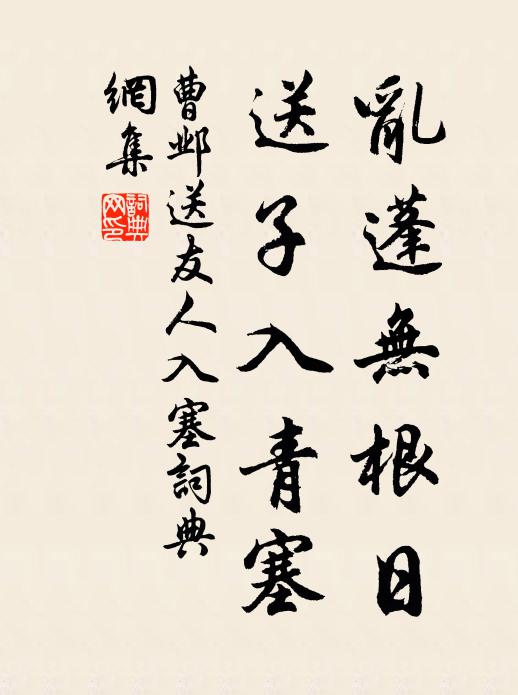 亂蓬無根日
送子入青塞
曹邺送友人入塞詞典
網集
詞典
网印